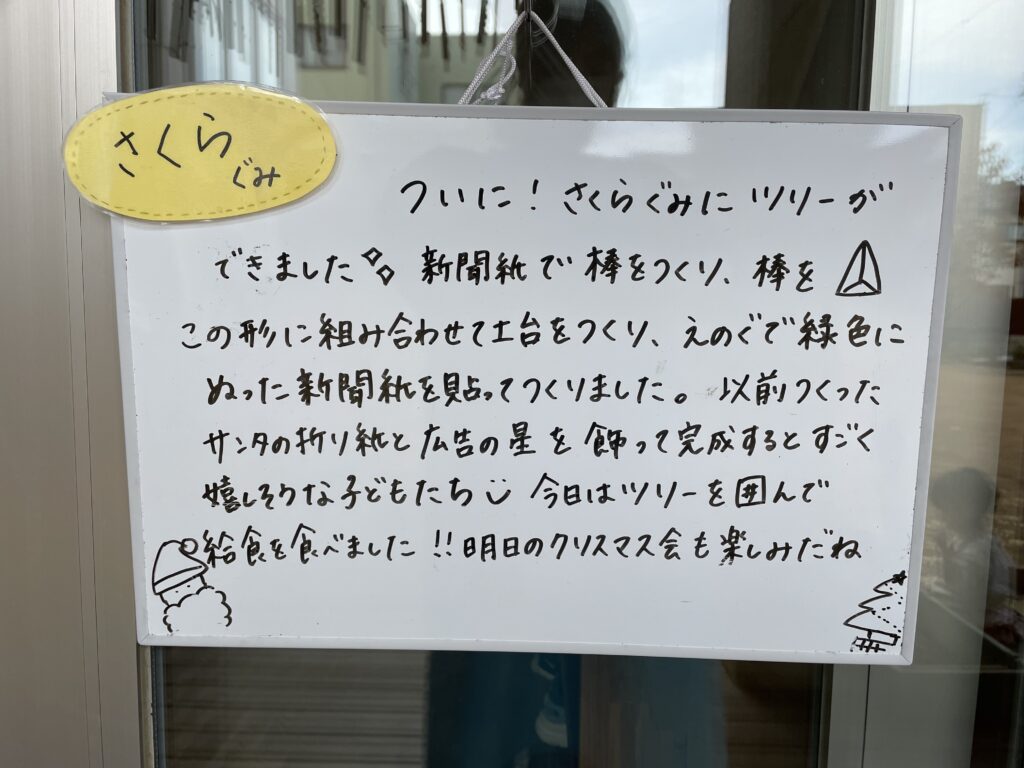 さくら
ぐみ
ついに！さくらぐみにツリーが
できました 新聞紙で棒をつくり、棒を
この形に組み合わせて土台をつくり、えのぐで緑色に
ぬった新聞紙を貼ってつくりました。以前つくった
サンタの折り紙と広告の星を飾って完成するとすごく
嬉しそうな子どもたち 今日はツリーを囲んで
給食を食べました!!明日のクリスマス会も楽しみだね